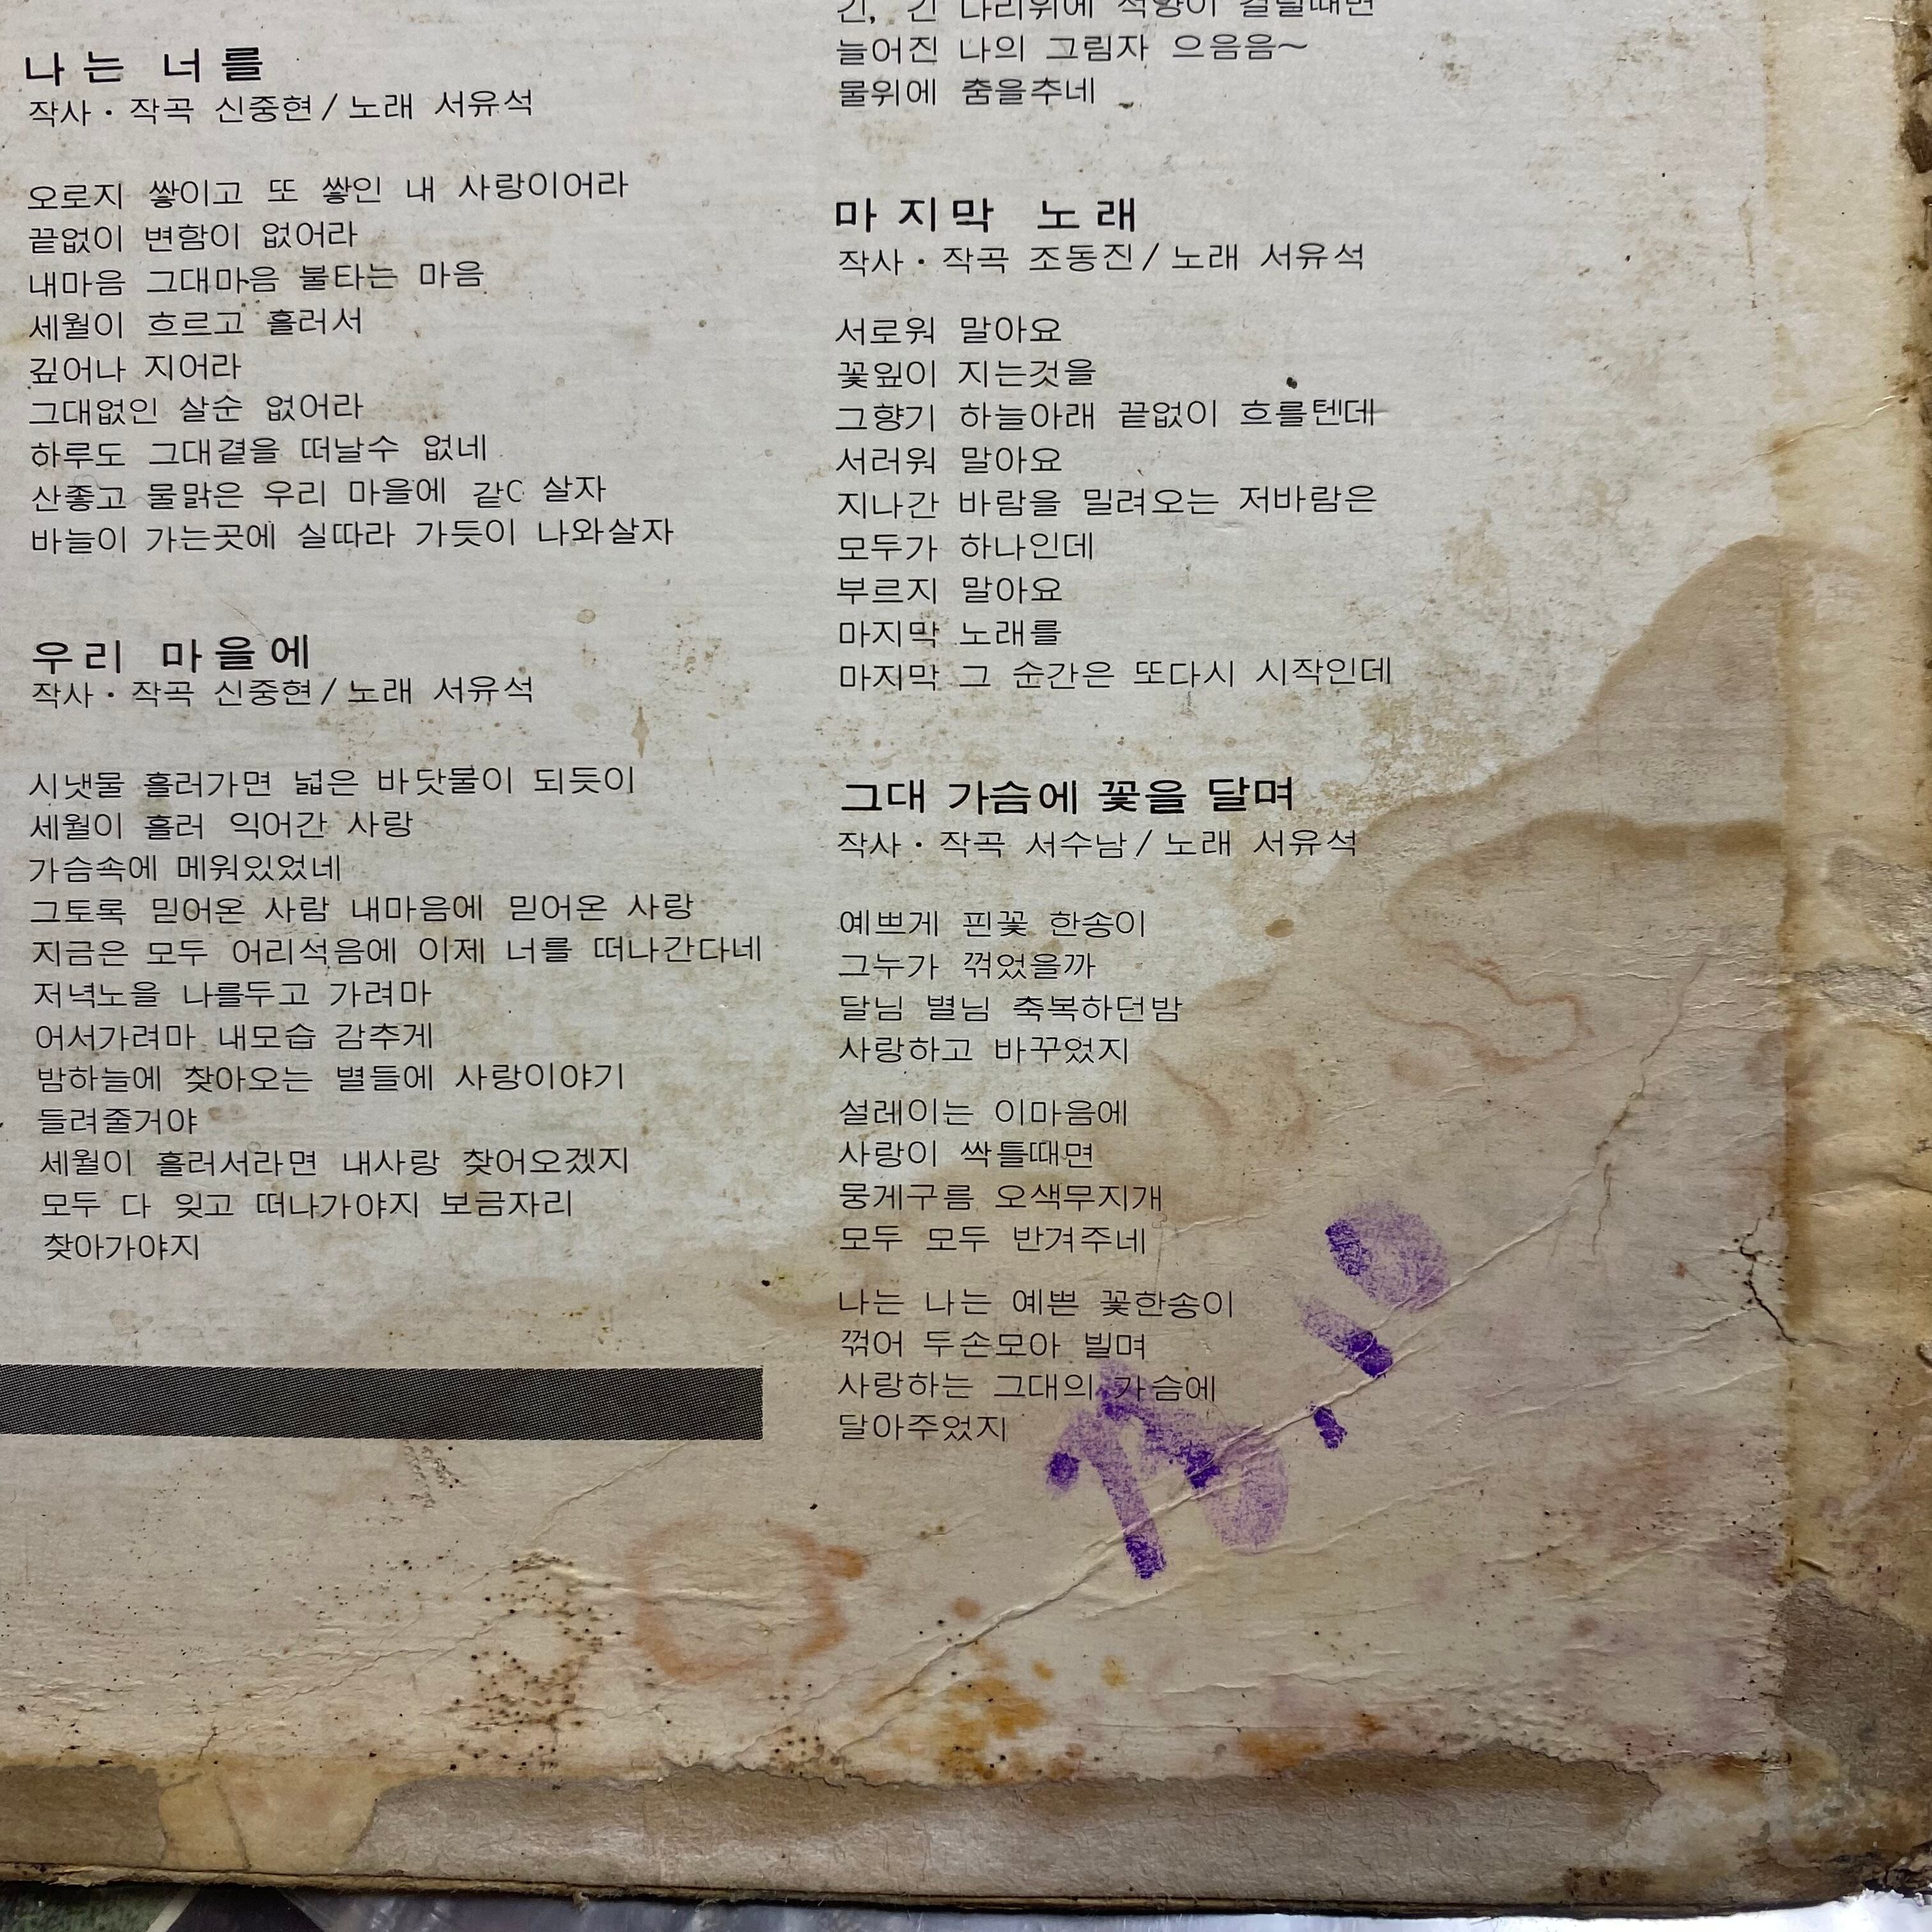 나는 너를
작사·작곡 신중현/노래 서유석
오로지 쌓이고 또 쌓인 내 사랑이어라
끝없이 변함이 없어라
내마음 그대마음 불타는 마음
세월이 흐르고 흘러서
깊어나 지어라
그대없인 살순 없어라
하루도 그대곁을 떠날수 없네
산좋고 물맑은 우리 마을에 살자
바늘이 가는곳에 실따라 가듯이 나와살자
우리 마을에
작사·작곡 신중현/노래 서유석
시냇물 흘러가면 넓은 바닷물이 되듯이
세월이 흘러 익어간 사랑
가슴속에 메워있었네
그토록 믿어온 사람 내마음에 믿어온 사랑
지금은 모두 어리석음에 이제 너를 떠나간다네
저녁노을 나를두고 가려마
어서가려마 내모습 감추게
밤하늘에 찾아오는 별들에 사랑이야기
들려줄거야
세월이 흘러서라면 내사랑 찾어오겠지
모두 다 잊고 떠나가야지 보금자리
찾아가야지
긴, 긴 다리위에 석양이 걸릴때면
늘어진 나의 그림자 으음음~
물위에 춤을추네
마지막 노래
작사·작곡 조동진/노래 서유석
서로워 말아요
꽃잎이 지는것을
그향기 하늘아래 끝없이 흐를텐데
서러워 말아요
지나간 바람을 밀려오는 저바람은
모두가 하나인데
부르지 말아요
마지막 노래를
마지막 그 순간은 또다시 시작인데
그대 가슴에 꽃을 달며
작사·작곡 서수남/노래 서유석
예쁘게 핀꽃 한송이
그누가 꺾었을까
달님 별님 축복하던밤
사랑하고 바꾸었지
설레이는 이마음에
사랑이 싹틀때면
뭉게구름 오색무지개
모두 모두 반겨주네
나는 나는 예쁜 꽃한송이
꺾어 두손모아 빌며
사랑하는 그대의 가슴에
달아주었지